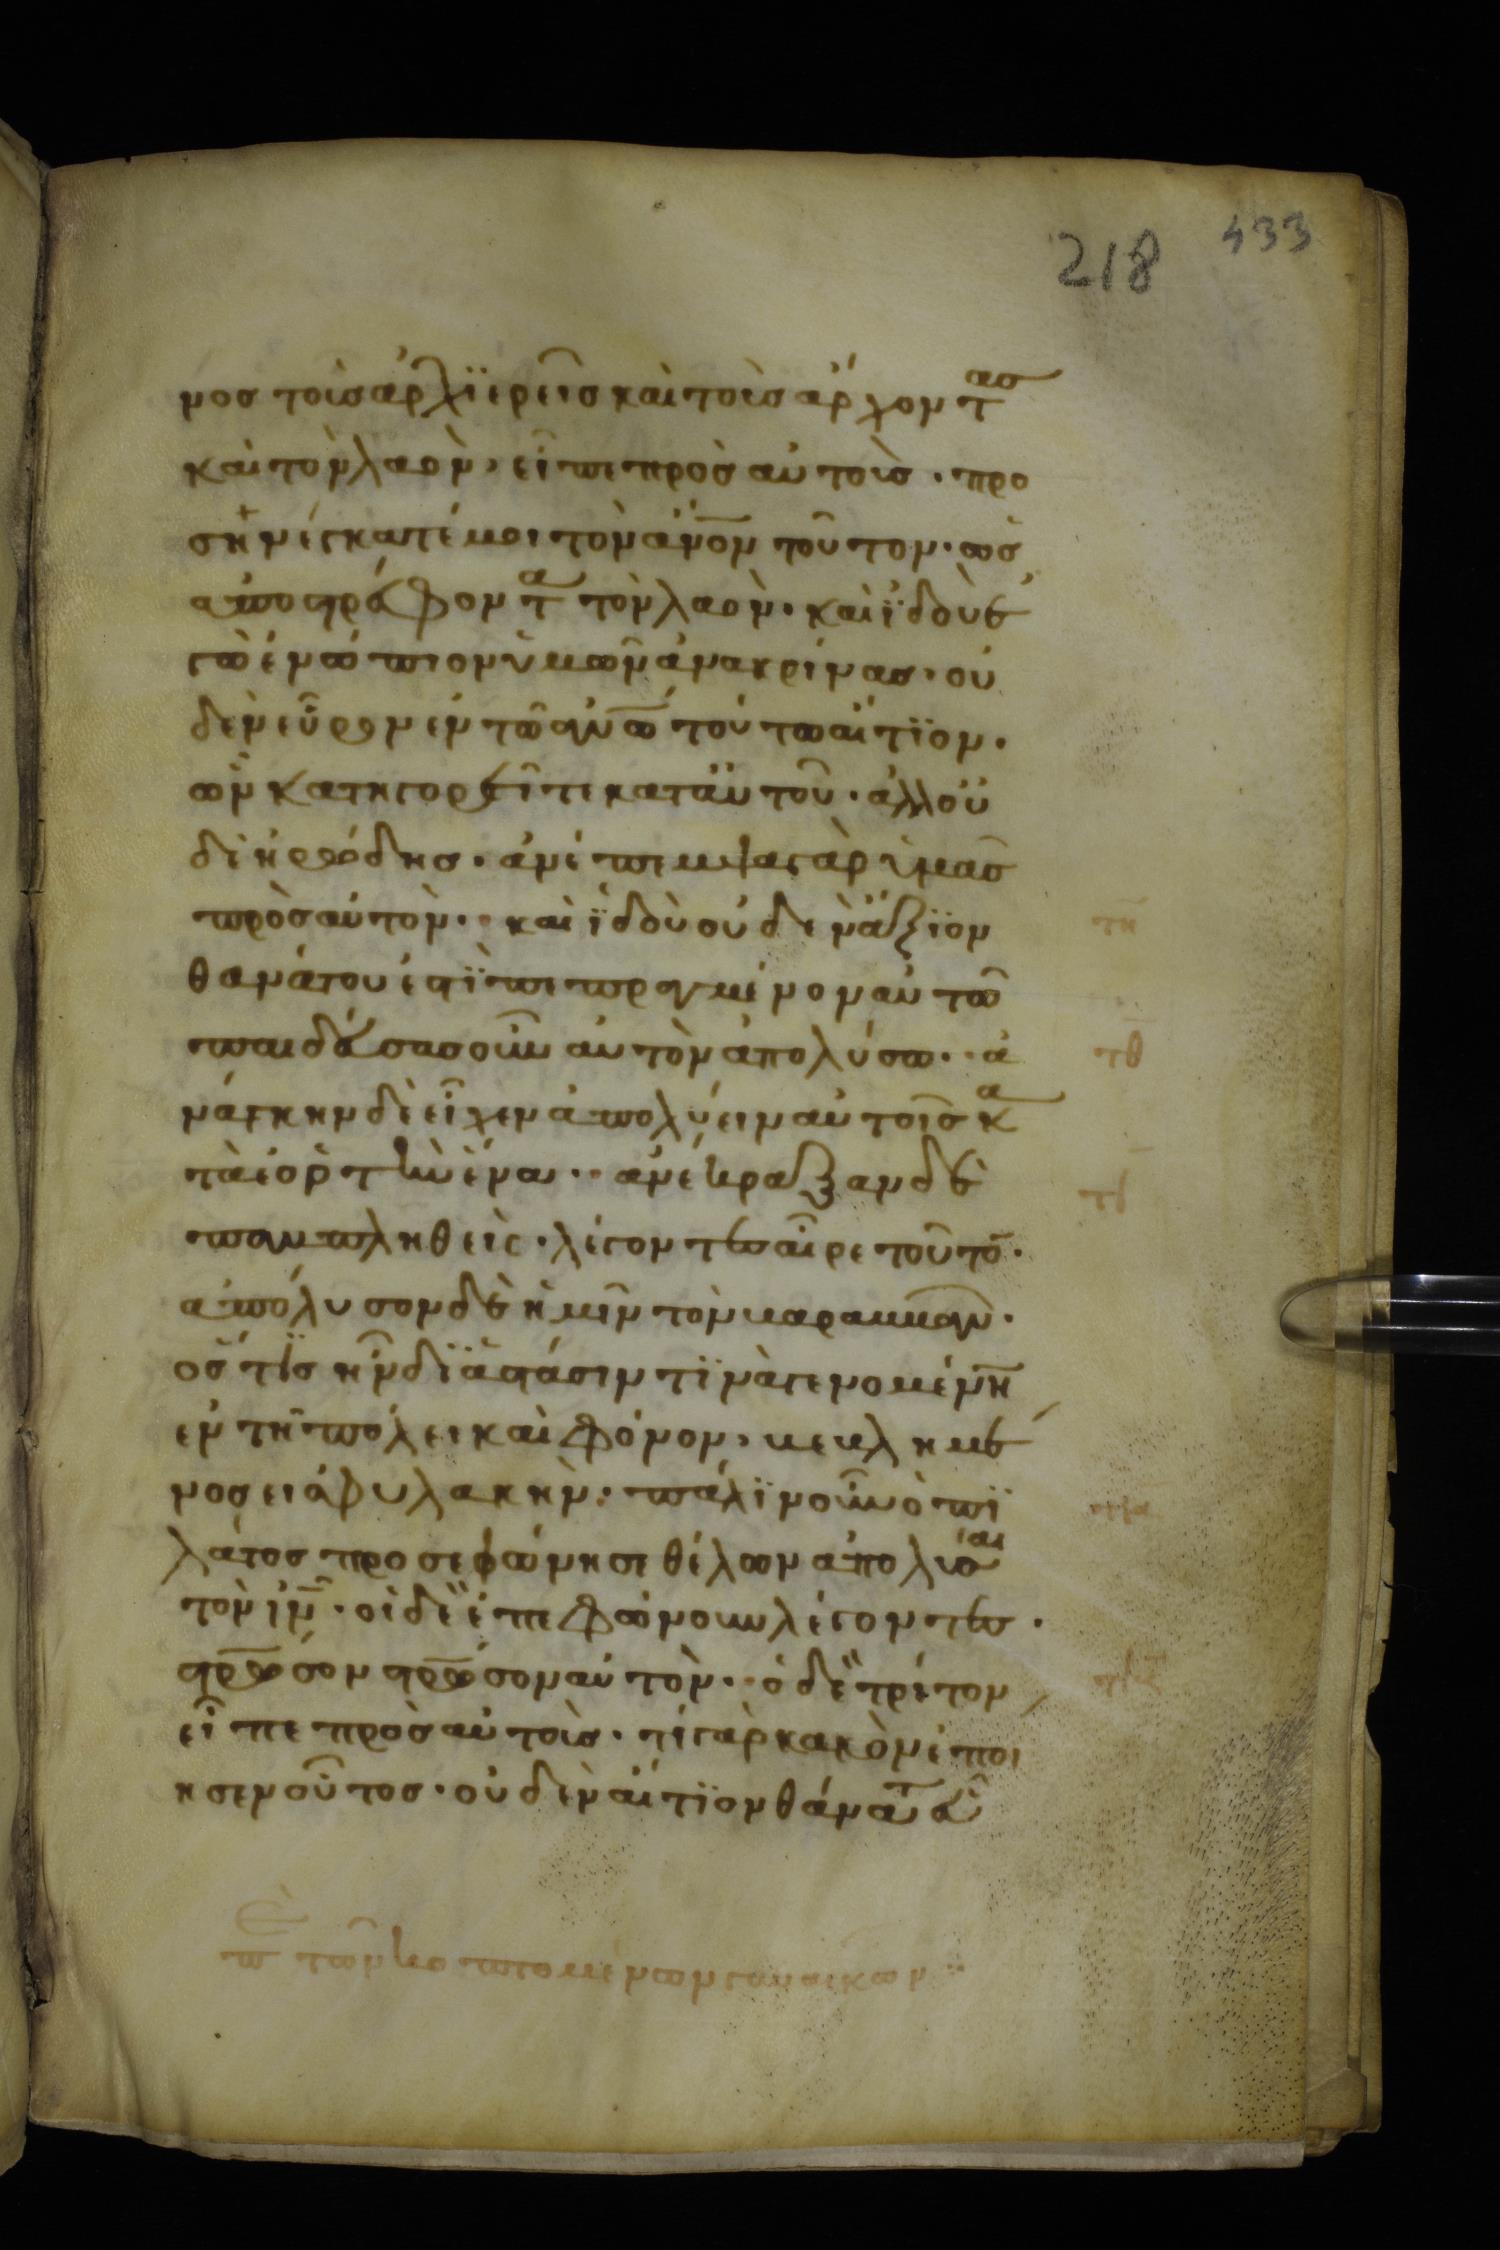 218 433
μος τοὺς ἀρχϊερεῖς καὶ τοὺς ἄρχοντας
καὶ τὸν λαὸν, εἶπε πρὸς αὐτοὺς · προ
σηνέγκατέ μοι τὸν ἀνον τοῦτον · ὡς
ἀποστρέφοντα τὸν λαὸν · καὶ ϊδοὺ ἐ
γὼ ἐνώπιον ὑμῶν ἀνακρίνας · οὐ
δὲν εὗρον ἐν τῶ ανω τούτω αἴτϊον ·
ὧν κατηγορεῖτε κατ αὐτοῦ · ἀλλ οὐ
δὲ ἡρώδης · ἀνέπεμψα γὰρ ὑμᾶς
πρὸς αὐτὸν · καὶ ϊδοὺ οὐδὲν ἄξϊον
θανάτου ἐστὶ πεπραγμένον αὐτῶ
παιδεύσας οὖν αὐτὸν ἀπολύσω · ἀ
νάγκην δὲ εἶχεν ἀπολύειν αὐτοῖς κα
τὰ ἑορτὴν ἕνα · ἀνέκραξαν δὲ
παμπληθεὶ · λέγοντες αἶρε τοῦτο ·
ἀπόλυσον δὲ ἡμῖν τὸν βαραββαν ·
ὅστις ἦν δϊὰ στάσιν τϊνὰ γενομένη
ἐν τῆ πόλει καὶ φόνον, βεβλημέ
νος εἰς φυλακὴν · πάλϊν οὖν ὁ πϊ
λάτος προσεφώνησε θέλων ἀπολυσαι
τὸν ιν · οἱ δὲ ἐπεφώνουν λέγοντες ·
στρωσον στρωσον αὐτὸν · ὁ δὲ τρίτον
εἶπε πρὸς αὐτοὺς · τί γὰρ κακὸν ἐποί
ησεν οὗτος · οὐδὲν αἴτϊον θανάτου
τη
τθ
τι
π τῶν κοπτομένων γυναικῶν